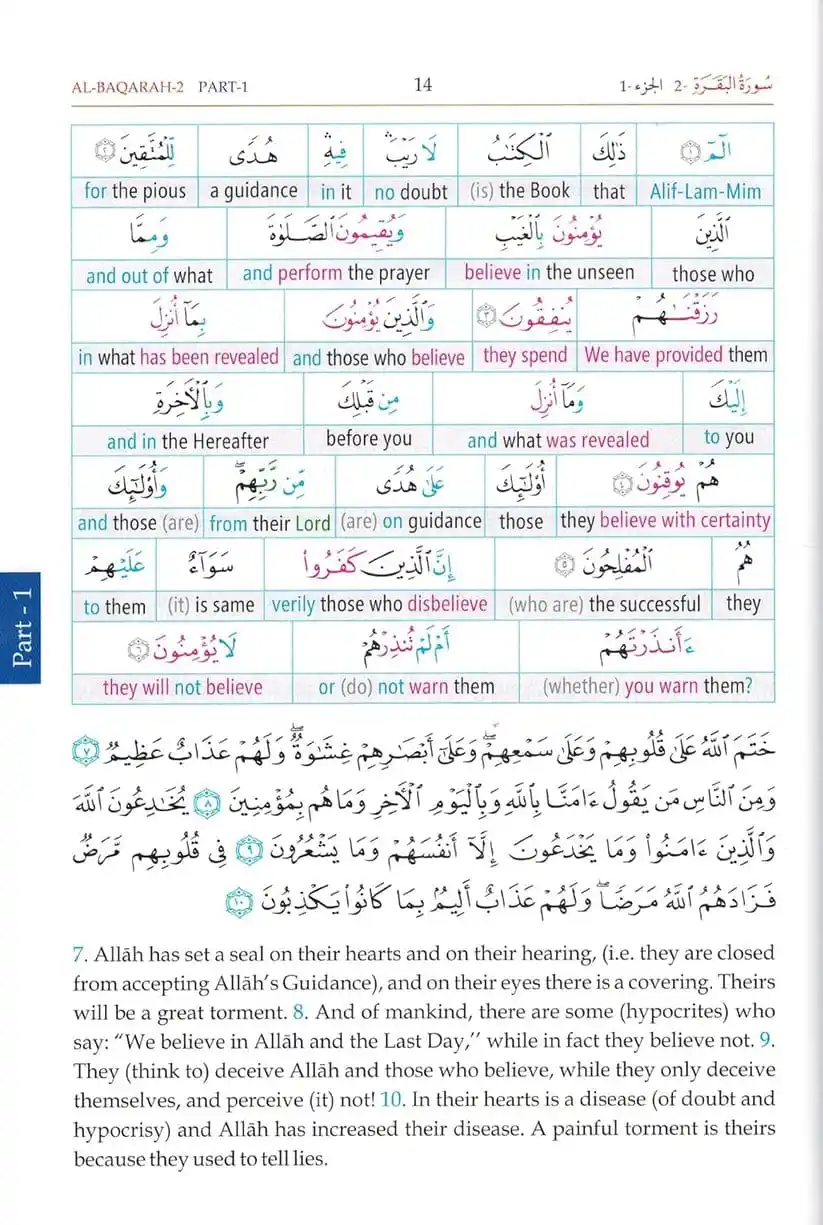 AL-BAQARAH-2 PART-1
14
سُورَةُ البَقَرَةِ -2 الجزء -1
الٓمٓ ١ ذَٰلِكَ ٱلْكِتَٰبُ لَا رَيْبَ ۛ فِيهِ ۛ هُدًى لِّلْمُتَّقِينَ ٢
Alif-Lam-Mim that (is) the Book no doubt in it a guidance for the pious
ٱلَّذِينَ يُؤْمِنُونَ بِٱلْغَيْبِ وَيُقِيمُونَ ٱلصَّلَوٰةَ وَمِمَّا
those who believe in the unseen and perform the prayer and out of what
رَزَقْنَٰهُمْ يُنفِقُونَ ٣ وَٱلَّذِينَ يُؤْمِنُونَ بِمَآ أُنزِلَ
We have provided them they spend and those who believe in what has been revealed
إِلَيْكَ وَمَآ أُنزِلَ مِن قَبْلِكَ وَبِٱلْأَخِرَةِ
to you and what was revealed before you and in the Hereafter
هُمْ يُوقِنُونَ ٤ أُو۟لَٰٓئِكَ عَلَىٰ هُدًى مِّن رَّبِّهِمْ ۖ وَأُو۟لَٰٓئِكَ
they believe with certainty those (are) on guidance from their Lord and those (are)
هُمُ ٱلْمُفْلِحُونَ ٥ إِنَّ ٱلَّذِينَ كَفَرُوا۟ سَوَآءٌ عَلَيْهِمْ
they (who are) the successful verily those who disbelieve (it) is same to them
ءَأَنذَرْتَهُمْ أَمْ لَمْ تُنذِرْهُمْ لَا يُؤْمِنُونَ ٦
(whether) you warn them? or (do) not warn them they will not believe
Part - 1
خَتَمَ ٱللَّهُ عَلَىٰ قُلُوبِهِمْ وَعَلَىٰ سَمْعِهِمْ ۖ وَعَلَىٰٓ أَبْصَٰرِهِمْ غِشَٰوَةٌ ۖ وَلَهُمْ عَذَابٌ عَظِيمٌ ٧
وَمِنَ ٱلنَّاسِ مَن يَقُولُ ءَامَنَّا بِٱللَّهِ وَبِٱلْيَوْمِ ٱلْأَخِرِ وَمَا هُم بِمُؤْمِنِينَ ٨ يُخَٰدِعُونَ ٱللَّهَ
وَٱلَّذِينَ ءَامَنُوا۟ وَمَا يَخْدَعُونَ إِلَّآ أَنفُسَهُمْ وَمَا يَشْعُرُونَ ٩ فِى قُلُوبِهِم مَّرَضٌ
فَزَادَهُمُ ٱللَّهُ مَرَضًا ۖ وَلَهُمْ عَذَابٌ أَلِيمٌۢ بِمَا كَانُوا۟ يَكْذِبُونَ ١٠
7. Allāh has set a seal on their hearts and on their hearing, (i.e. they are closed
from accepting Allāh’s Guidance), and on their eyes there is a covering. Theirs
will be a great torment. 8. And of mankind, there are some (hypocrites) who
say: “We believe in Allāh and the Last Day,” while in fact they believe not. 9.
They (think to) deceive Allāh and those who believe, while they only deceive
themselves, and perceive (it) not! 10. In their hearts is a disease (of doubt and
hypocrisy) and Allāh has increased their disease. A painful torment is theirs
because they used to tell lies.